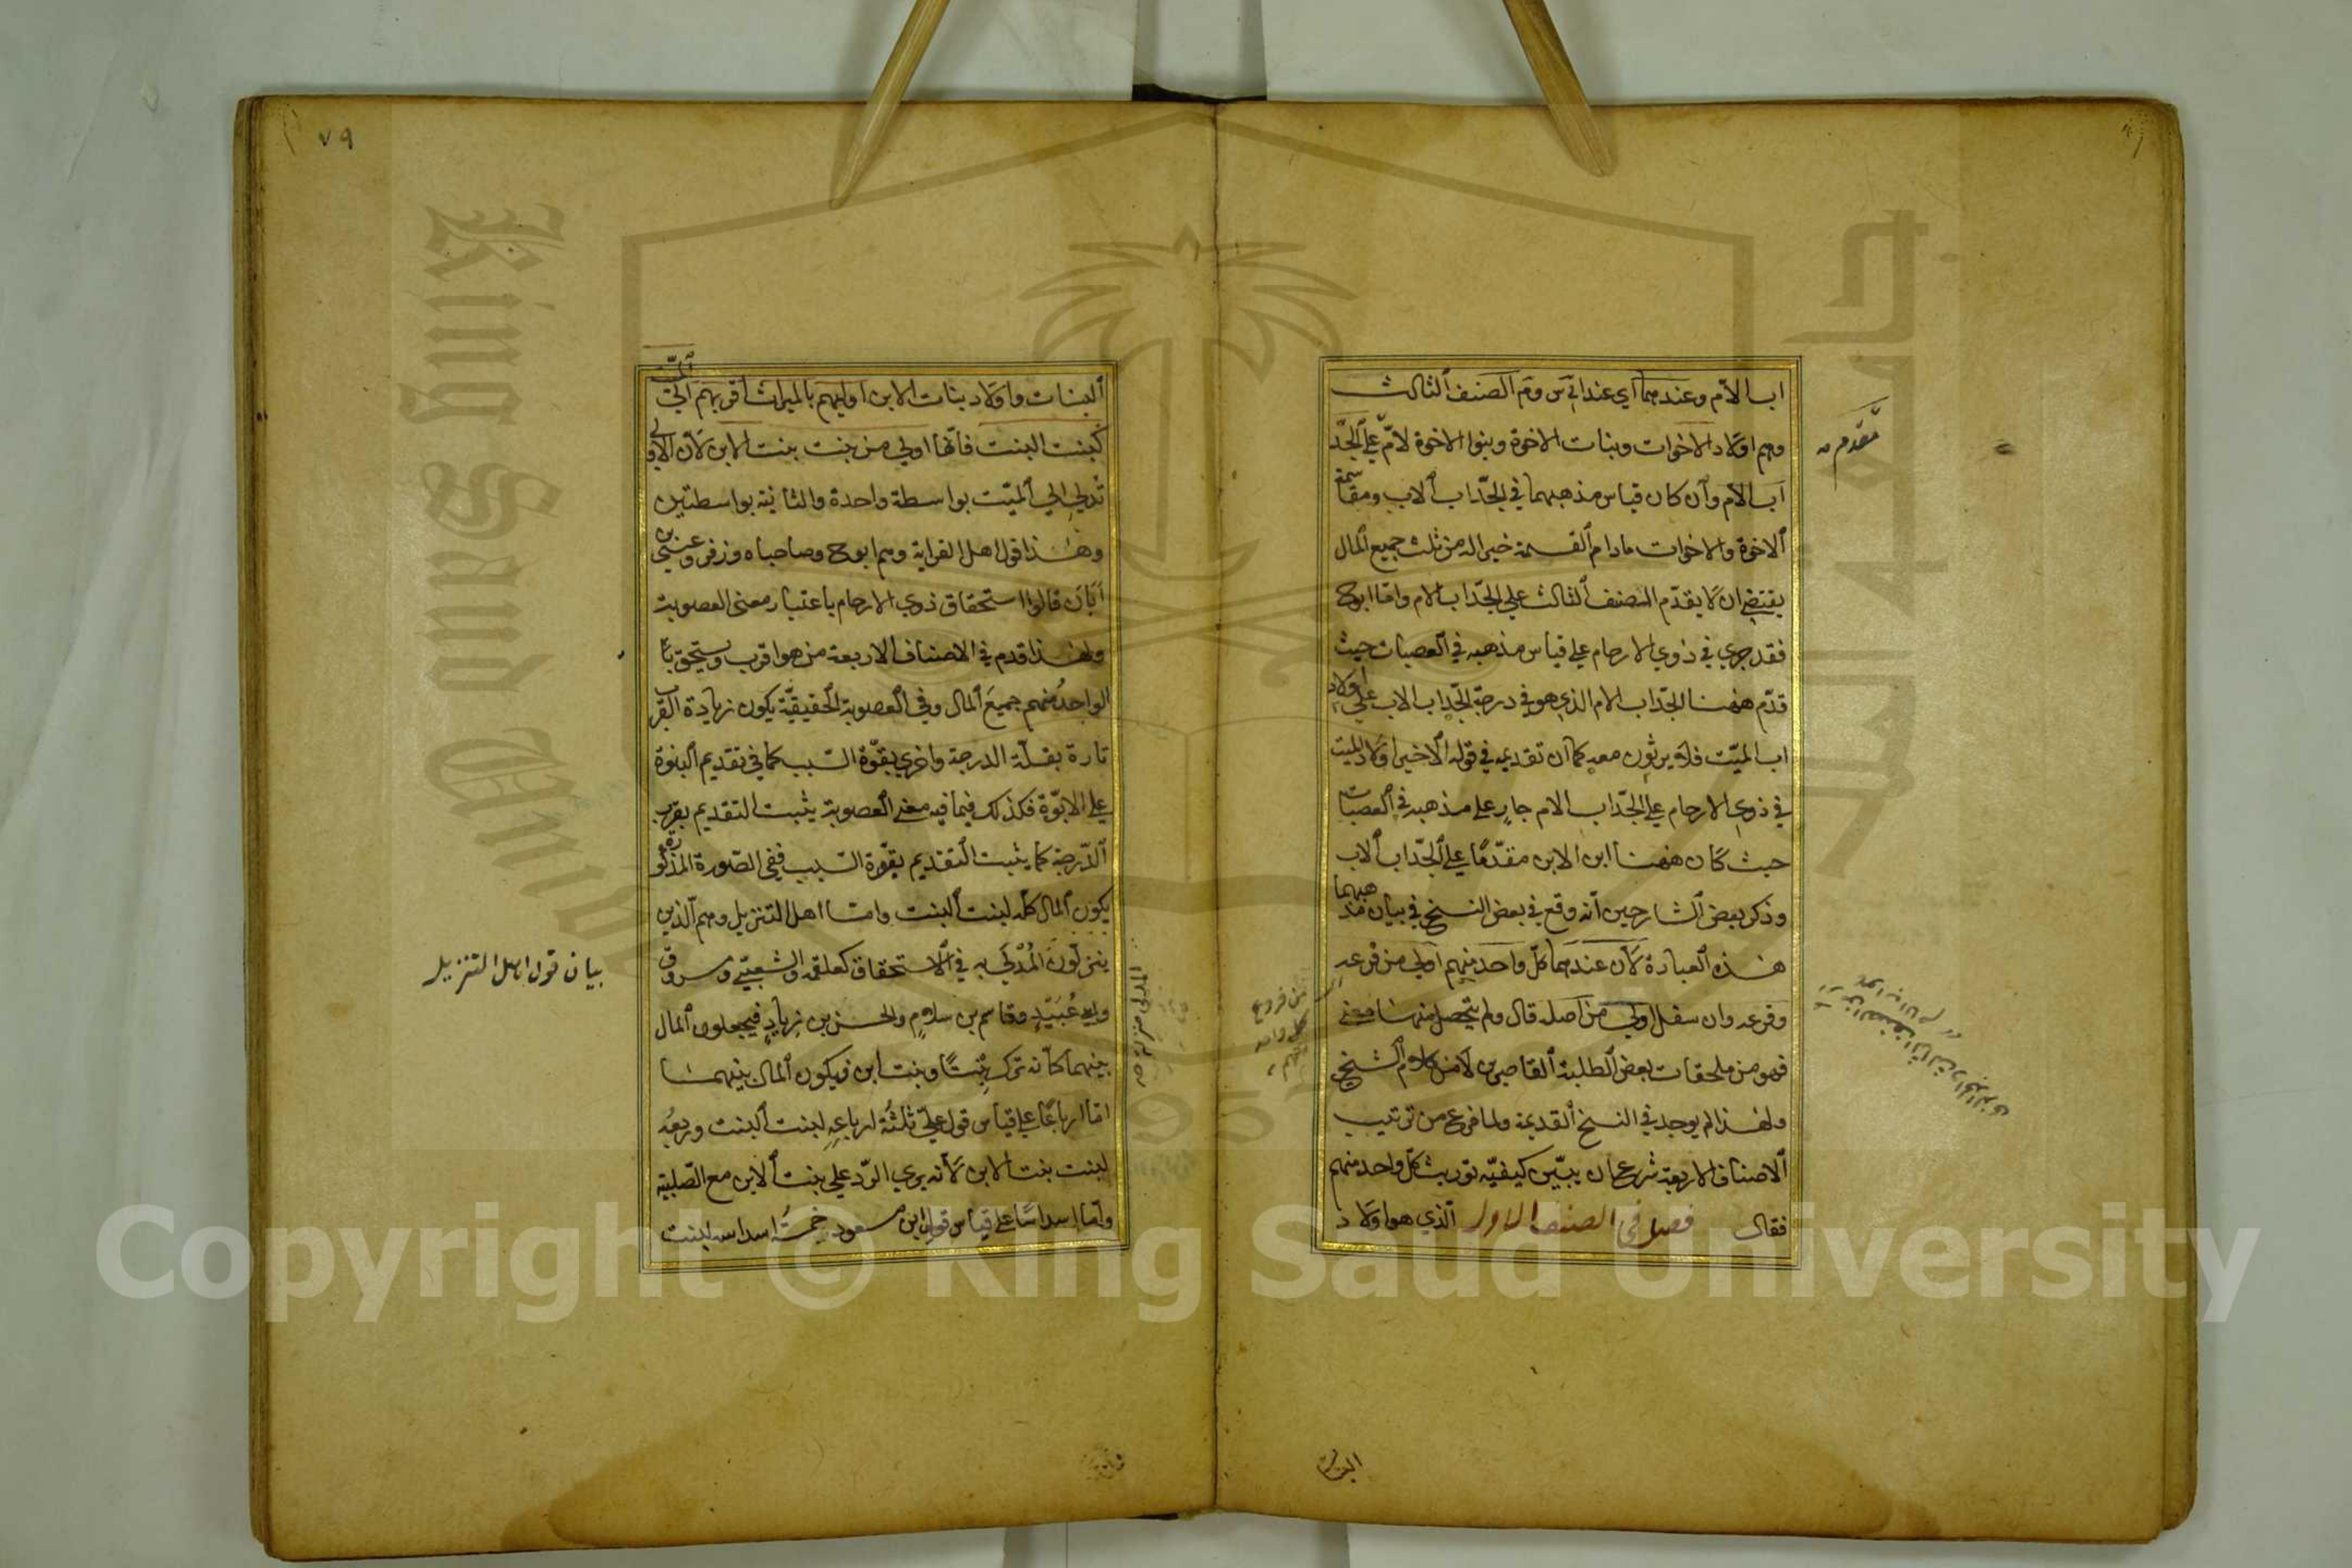 اب الام وعندهما اي عند ابي س وم الصنف الثالث
وهم اولاد الاخوات وبنات الاخوة وبنوا الاخوة لام علي الجد
مقدم
اب الام وان كان قياس مذهبهما في الجد اب الاب ومقاسمة
الاخوة والاخوات مادام القسمة خيرا له من ثلث جميع المال
يقتضي ان لا يقدم الصنف الثالث علي الجد اب الام واما ابو ح
فقد جري في ذوي الارحام علي قياس مذهبه في العصبات حيث
قدم ههنا الجد اب الام الذي هو في درجة الجد اب الاب علي اولاد
اب الميت فلا يرثون معه كما ان تقديمه في قوله الاخير اولاد الميت
في ذوي الارحام علي الجد اب الام جار علي مذهبه في العصبات
حيث كان ههنا ابن الابن مقدما علي الجد اب الاب
وذكر بعض الشارحين انه وقع في بعض النسخ في بيان مذهبهما
هذه العبارة لان عندهما كل واحد منهم اولي من فرعه
وفرعه وان سفل اولي من اصله قال ولم يتحصل منها معني
فهو من ملحقات بعض الطلبة القاصرين لا من كلام الشيخ
ولهذا لم يوجد في النسخ القديمة ولما فرع من ترتيب
الاصناف الاربعة شرع ان يبين كيفية توريث كل واحد منهم
فقال فصل في الصنف الاول الذي هو اولاد
البنات
٧٩
البنات واولاد بنات الابن اوليهم بالميراث اقربهم الي الميت
كبنت البنت فانها اولي من بنت بنت الابن لان الاولي
تدلي الي الميت بواسطة واحدة والثانية بواسطتين
وهذا قول اهل القرابة وهم ابو ح وصاحباه وزفر وعيسي بن
ابان قالوا استحقاق ذوي الارحام باعتبار معني العصوبة
ولهذا قدم في الاصناف الاربعة من هو اقرب ويستحق
الواحد منهم جميع المال وفي العصوبة الحقيقية يكون زيادة القرب
تارة بقلة الدرجة واخري بقوة السبب كما في تقديم البنوة
علي الابوة فكذلك فيما فيه معني العصوبة يثبت التقديم بقرب
الدرجة كما يثبت التقديم بقوة السبب ففي الصورة المذكورة
يكون المال كله لبنت البنت واما اهل التنزيل وهم الذين
ينزلون المدلي به في الاستحقاق كعلقمة والشعبي ومسروق
بيان قول اهل التنزيل
وابي عبيد وقاسم بن سلام والحسن بن زياد فيجعلون المال
بينهما كانه ترك بنتا وبنت ابن فيكون المال بينهما
اما ارباعا علي قياس قول علي ثلثة ارباعه لبنت البنت وربعه
لبنت بنت الابن لانه يري الرد علي بنت الابن مع الصلبية
واما اسداسا علي قياس قول ابن مسعود خمسة اسداسه لبنت
Copyright © King Saud University